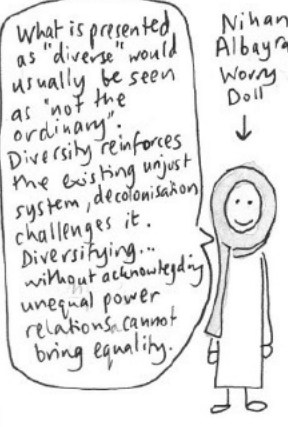 What is presented
as "diverse" would
usually be seen
as "not the
ordinary".
Diversity reinforces
the existing unjust
system, decolonisation
challenges it.
Diversifying...
without acknowledging
unequal power
relations cannot
bring equality.
Nihan
Albayra
Worry
Doll